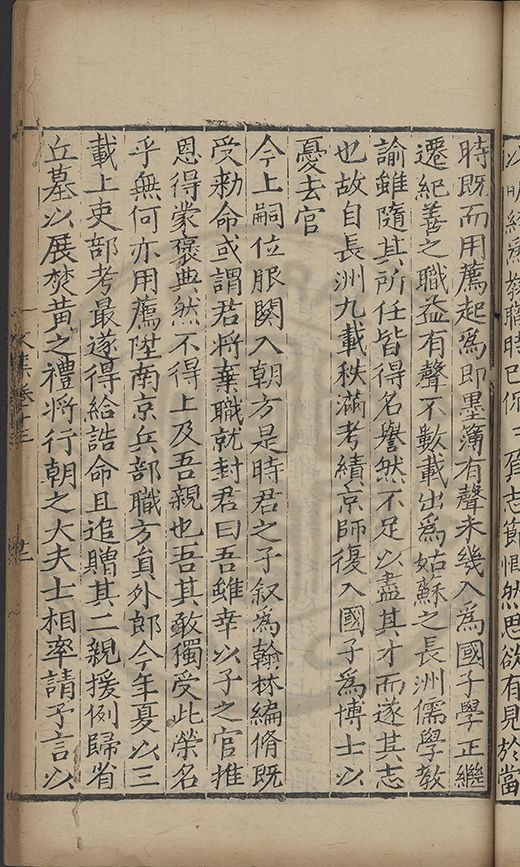 以明經為教職時已
志節慨然思欲有見於當
時既而用薦起為即墨簿有聲未幾入為國子學正繼
遷紀善之職益有聲不數載出為姑蘇之長洲儒學教
諭雖隨其所任皆得名譽然不足以盡其才而遂其志
也故自長洲九載秩滿考績京師復入國子為博士以
憂去官
今上嗣位服闋入朝方是時君之子叙為翰林編脩既
受勑命或謂君將棄職就封君曰吾雖幸以子之官推
恩得蒙褒典然不得上及吾親也吾其敢獨受此榮名
乎無何亦用薦陞南京兵部職方員外郎今年夏以三
載上吏部考最遂得給誥命且追贈其二親援例歸省
丘墓以展焚黃之禮將行朝之大夫士相率請予言以